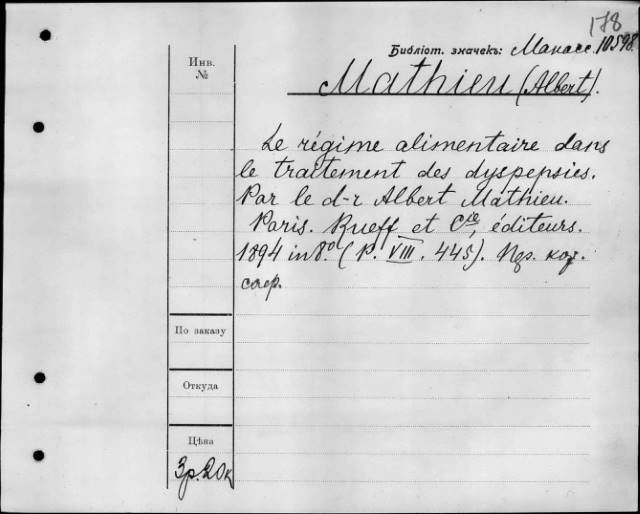 178
Библіот. значекъ: Манасс. 10598.
Инв.
№
Mathieu (Albert).
Le régime alimentaire dans
le traitement des dyspepsies.
Par le d-r Albert Mathieu.
Paris. Rueff et Cie, éditeurs.
1894 in 8.º (P. VIII. 445).
По заказу
Откуда
Цѣна
3р.20к